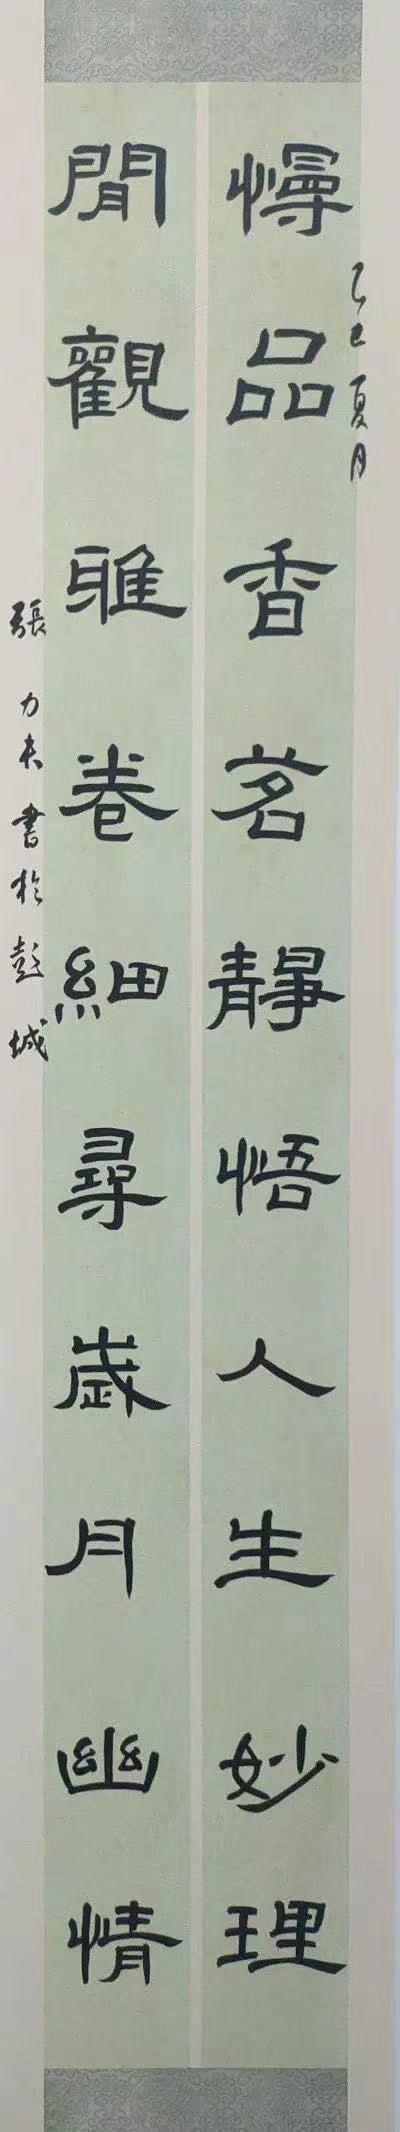 慢品香茗靜悟人生妙理
乙巳夏月
閒觀雅卷細尋歲月幽情
張力夫書於彭城